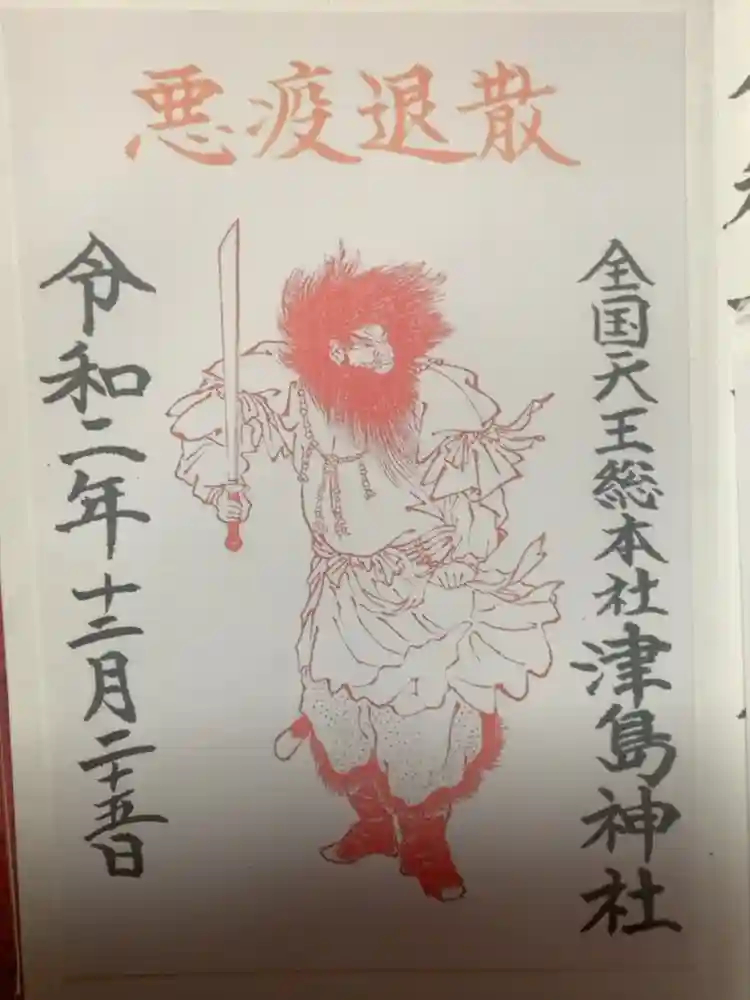 悪疫退散
全国天王総本社津島神社
令和二年十二月二十五日